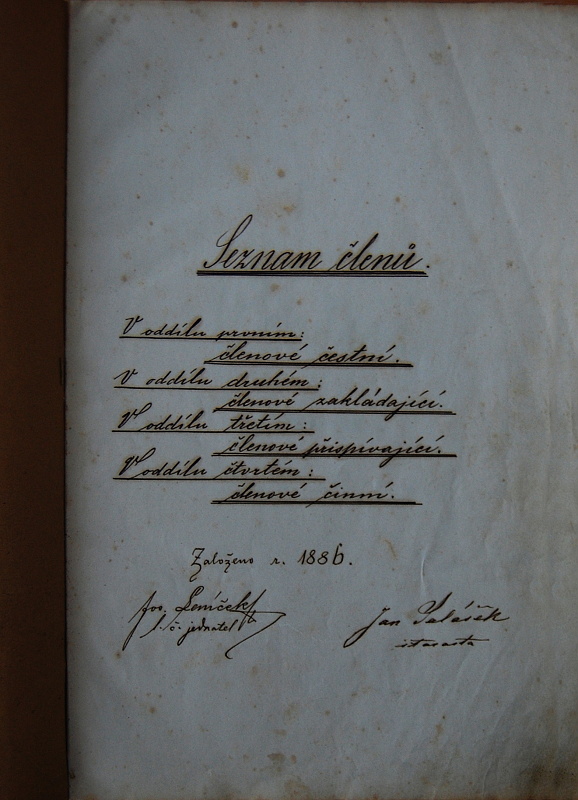 Seznam členů.
V oddílu prvním:
členové čestní.
V oddílu druhém:
členové zakládající.
V oddílu třetím:
členové přispívající.
V oddílu čtvrtém:
členové činní.
Založeno r. 1886.
Jos. Leníček
t. č. jednatel
Jan Salášek
starosta